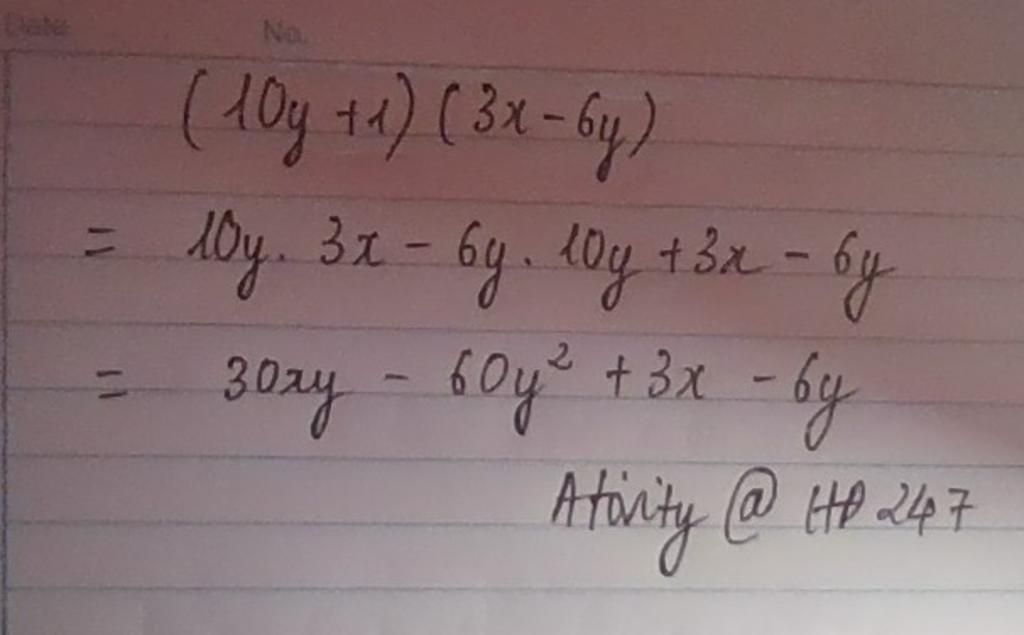 Date No.
(10y +1) (3x - 6y)
= 10y. 3x - 6y. 10y + 3x - 6y
= 30xy - 60y² + 3x - 6y
@ 247